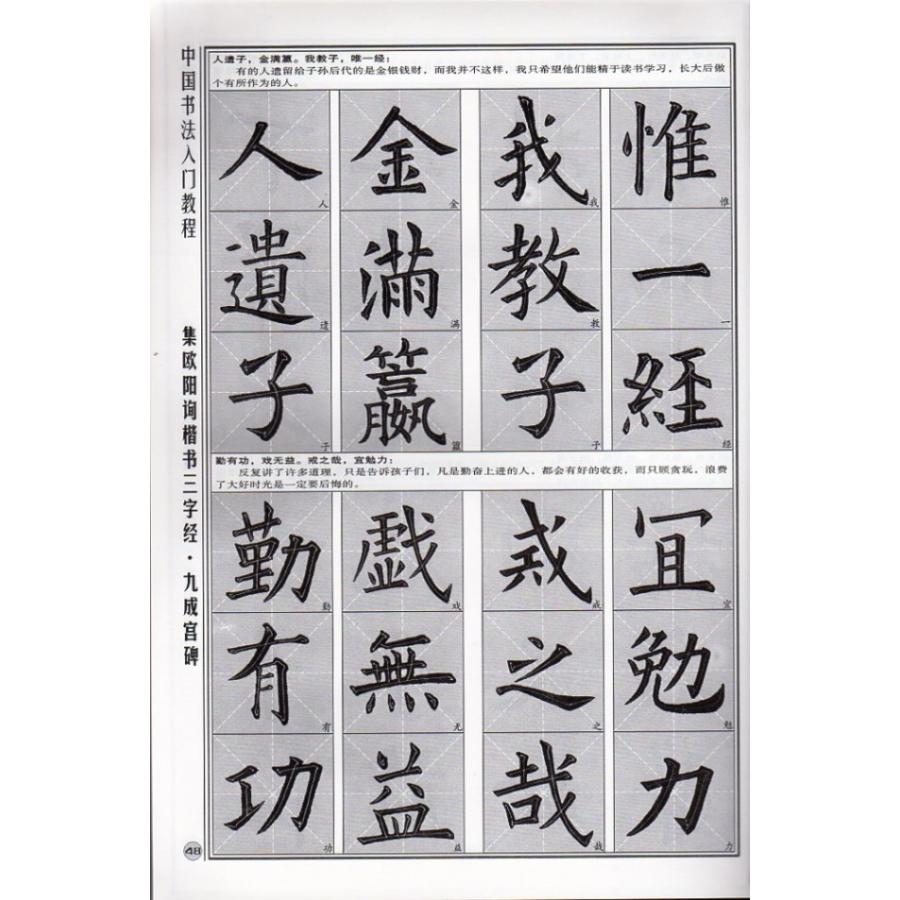 中国书法入门教程
集欧阳询楷书三字经·九成宫碑
人遗子，金满籯。我教子，唯一经：
有的人遗留给子孙后代的是金银钱财，而我并不这样，我只希望他们能精于读书学习，长大后做
个有所作为的人。
人遺子
人遗子
金滿籯
金满籯
我教子
我教子
惟一經
惟一经
勤有功，戏无益。戒之哉，宜勉力：
反复讲了许多道理，只是告诉孩子们，凡是勤奋上进的人，都会有好的收获，而只顾贪玩，浪费
了大好时光是一定要后悔的。
勤有功
勤有功
戲無益
戏无益
戒之哉
戒之哉
冝勉力
宜勉力
48